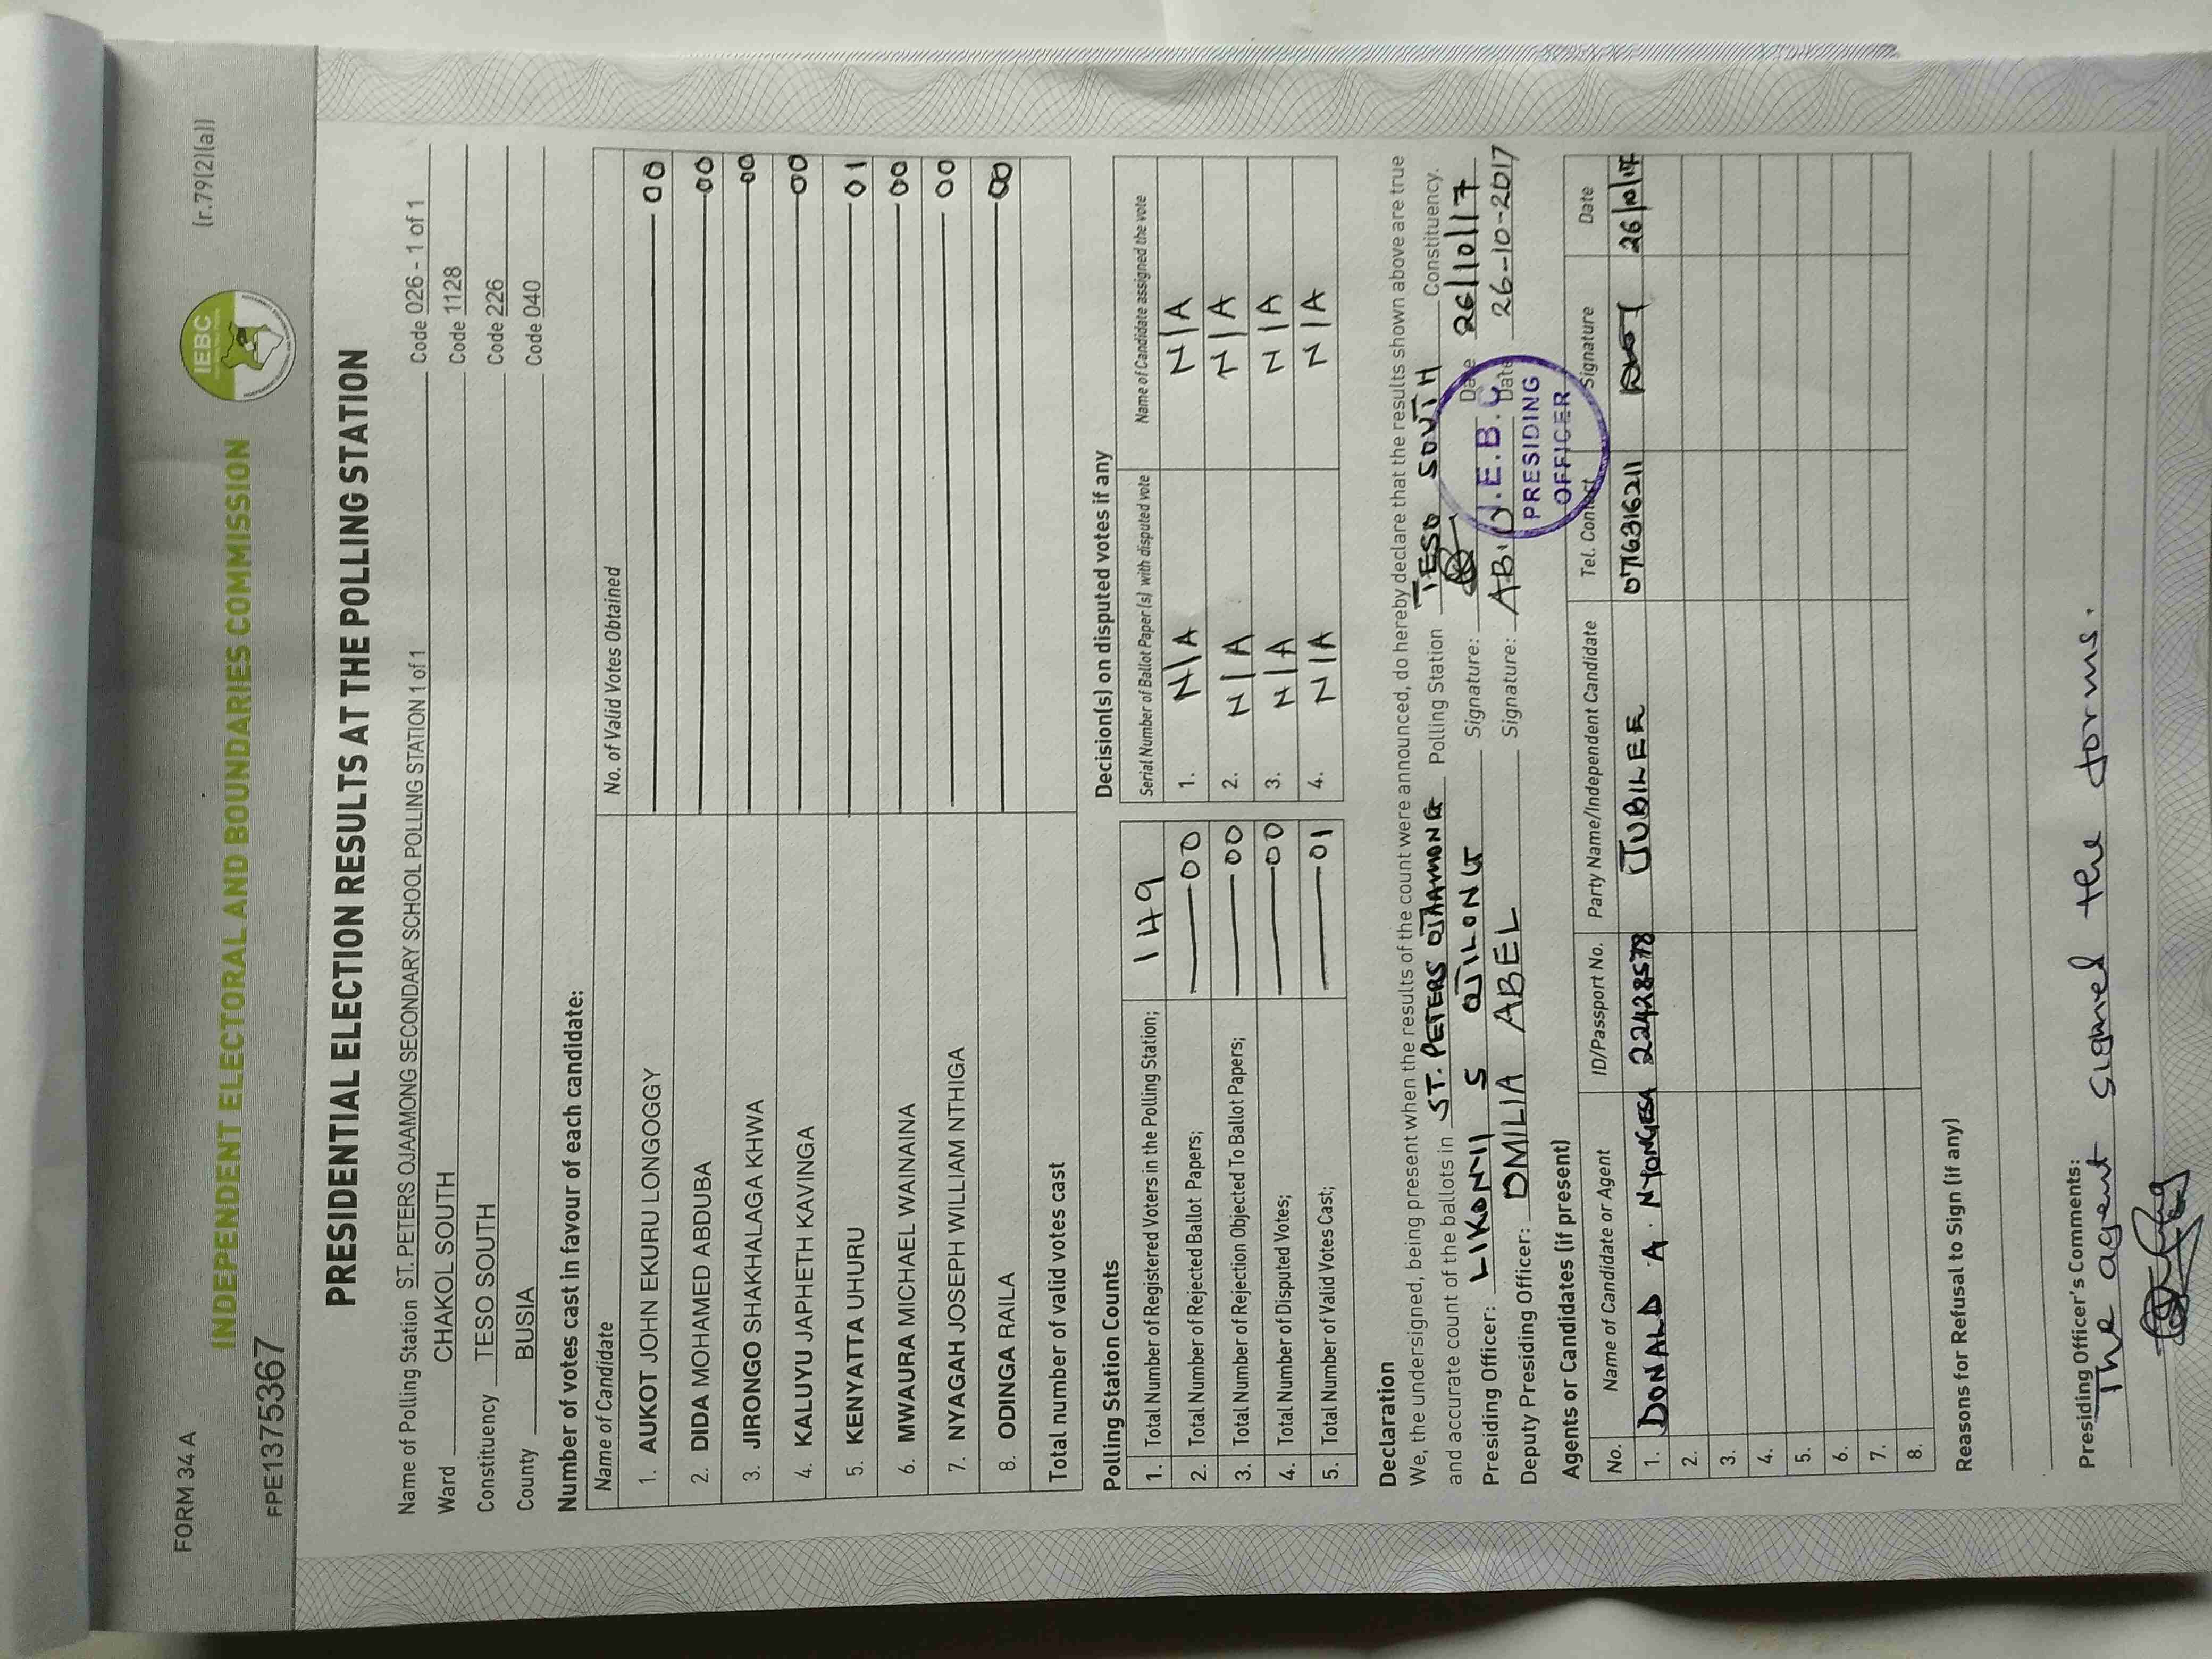 FORM 34 A
(r.79(2)(a))
IEBC
INDEPENDENT ELECTORAL AND BOUNDARIES COMMISSION
FPE1375367
PRESIDENTIAL ELECTION RESULTS AT THE POLLING STATION
Name of Polling Station ST. PETERS OJAAMONG SECONDARY SCHOOL POLLING STATION 1 of 1 Code 026 - 1 of 1
Ward CHAKOL SOUTH Code 1128
Constituency TESO SOUTH Code 226
County BUSIA Code 040
Number of votes cast in favour of each candidate:
Name of Candidate No. of Valid Votes Obtained
1. AUKOT JOHN EKURU LONGOGGY 00
2. DIDA MOHAMED ABDUBA 00
3. JIRONGO SHAKHALAGA KHWA 00
4. KALUYU JAPHETH KAVINGA 00
5. KENYATTA UHURU 01
6. MWAURA MICHAEL WAINAINA 00
7. NYAGAH JOSEPH WILLIAM NTHIGA 00
8. ODINGA RAILA 00
Total number of valid votes cast
Polling Station Counts
1. Total Number of Registered Voters in the Polling Station; 149
2. Total Number of Rejected Ballot Papers; 00
3. Total Number of Rejection Objected To Ballot Papers; 00
4. Total Number of Disputed Votes; 00
5. Total Number of Valid Votes Cast; 01
Decision(s) on disputed votes if any
Serial Number of Ballot Paper(s) with disputed vote Name of Candidate assigned the vote
1. N/A N/A
2. N/A N/A
3. N/A N/A
4. N/A N/A
Declaration
We, the undersigned, being present when the results of the count were announced, do hereby declare that the results shown above are true
and accurate count of the ballots in ST. PETERS OJAAMONG Polling Station TESO SOUTH Constituency.
Presiding Officer: LIKONYI S OJILONG Signature: Date 26/10/17
Deputy Presiding Officer: OMILIA ABEL Signature: Date 26-10-2017
I.E.B.C
PRESIDING
OFFICER
Agents or Candidates (if present)
No. Name of Candidate or Agent ID/Passport No. Party Name/Independent Candidate Tel. Contact Signature Date
1. DONALD A. NYONGESA 22428578 JUBILEE 0776316211 26/10/17
2.
3.
4.
5.
6.
7.
8.
Reasons for Refusal to Sign (if any)
Presiding Officer's Comments:
The agent signed the forms.